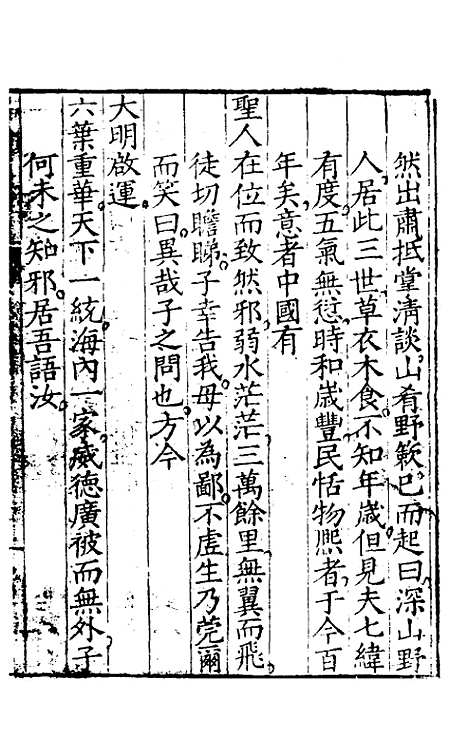 然出肅抵堂清談山肴野蔌已而起曰深山野
人居此三世草衣木食不知年歲但見夫七緯
有度五氣無愆時和歲豐民恬物熈者于今百
年矣意者中國有
聖人在位而致然邪弱水茫茫三萬餘里無翼而飛
徒切瞻睇子幸告我毋以為鄙不虛生乃莞爾
而笑曰異哉子之問也方今
大明啟運
六葉重華天下一統海內一家威德廣被而無外子
何未之知邪居吾語汝